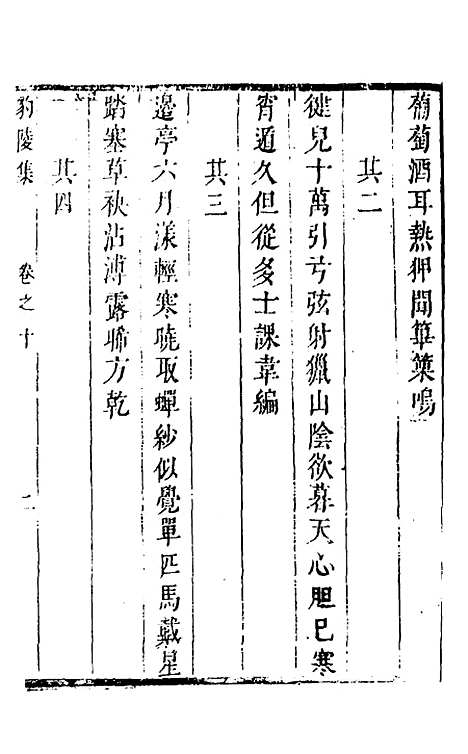 葡萄酒耳熱狎聞篳篥鳴
其二
健兒十萬引弓弦射獵山陰欲暮天心胆已寒
宵遁久但從多士課韋編
其三
邊亭六月漾輕寒曉取蟬紗似覺單匹馬戴星
踏塞草袂沾溥露晞方乾
其四
豹陵集 卷之十 二